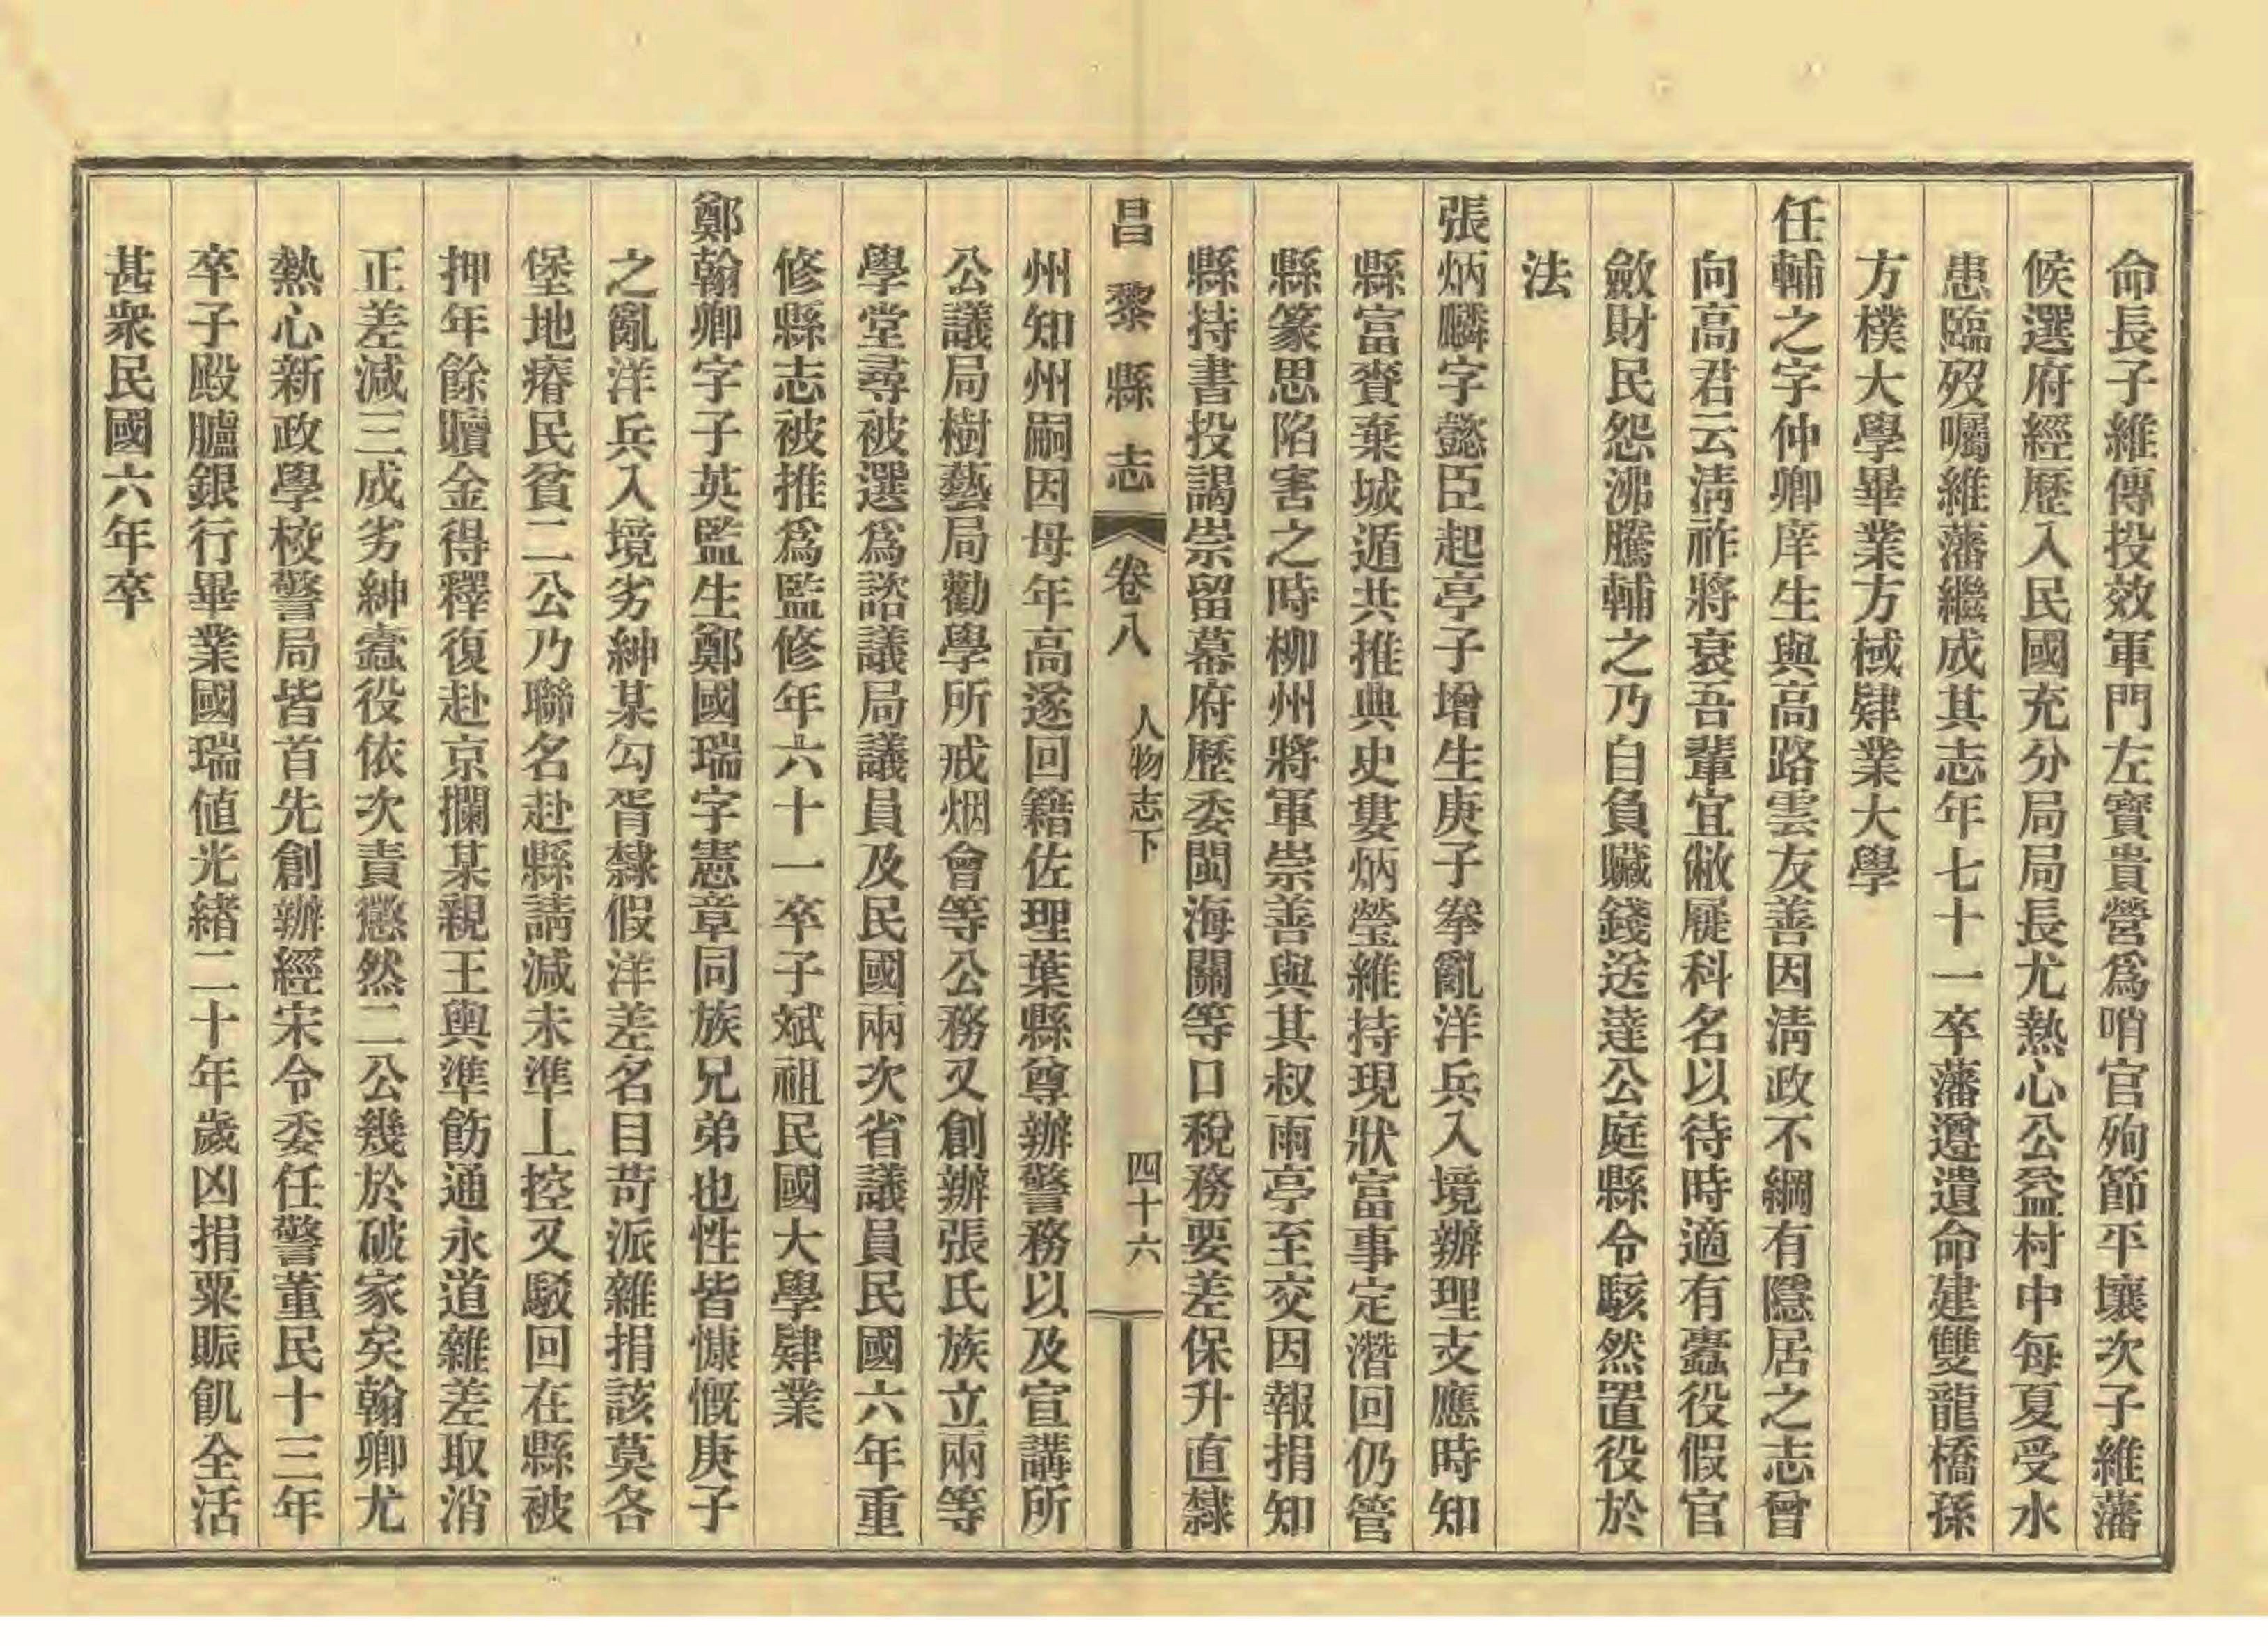 命長子維傳投效軍門左寶貴營爲哨官殉節平壤次子維藩
候選府經歷入民國充分局局長尤熱心公益村中每夏受水
患臨歿囑維藩繼成其志年七十一卒藩遵遺命建雙龍橋孫
方樸大學畢業方棫肄業大學
任輔之字仲卿庠生與高路雲友善因淸政不綱有隱居之志曾
向高君云淸祚將衰吾輩宜敝屣科名以待時適有蠹役假官
斂財民怨沸騰輔之乃自負贓錢送達公庭縣令駭然置役於
法
張炳麟字懿臣起亭子增生庚子拳亂洋兵入境辦理支應時知
縣富賚棄城遁共推典史婁炳瑩維持現狀富事定潛回仍管
縣篆思陷害之時柳州將軍崇善與其叔雨亭至交因報捐知
縣持書投謁崇留幕府歷委閩海關等口稅務要差保升直隸
昌黎縣志 卷八 人物志下 四十六
州知州嗣因母年高遂回籍佐理葉縣尊辦警務以及宣講所
公議局樹藝局勸學所戒烟會等公務又創辦張氏族立兩等
學堂尋被選爲諮議局議員及民國兩次省議員民國六年重
修縣志被推爲監修年六十一卒子斌祖民國大學肄業
鄭翰卿字子英監生鄭國瑞字憲章同族兄弟也性皆慷慨庚子
之亂洋兵入境劣紳某勾胥隸假洋差名目苛派雜捐該莫各
堡地瘠民貧二公乃聯名赴縣請減未準上控又駁回在縣被
押年餘贖金得釋復赴京攔某親王輿準飭通永道雜差取消
正差減三成劣紳蠹役依次責懲然二公幾於破家矣翰卿尤
熱心新政學校警局皆首先創辦經宋令委任警董民十三年
卒子殿臚銀行畢業國瑞値光緖二十年歲凶捐粟賑飢全活
甚衆民國六年卒